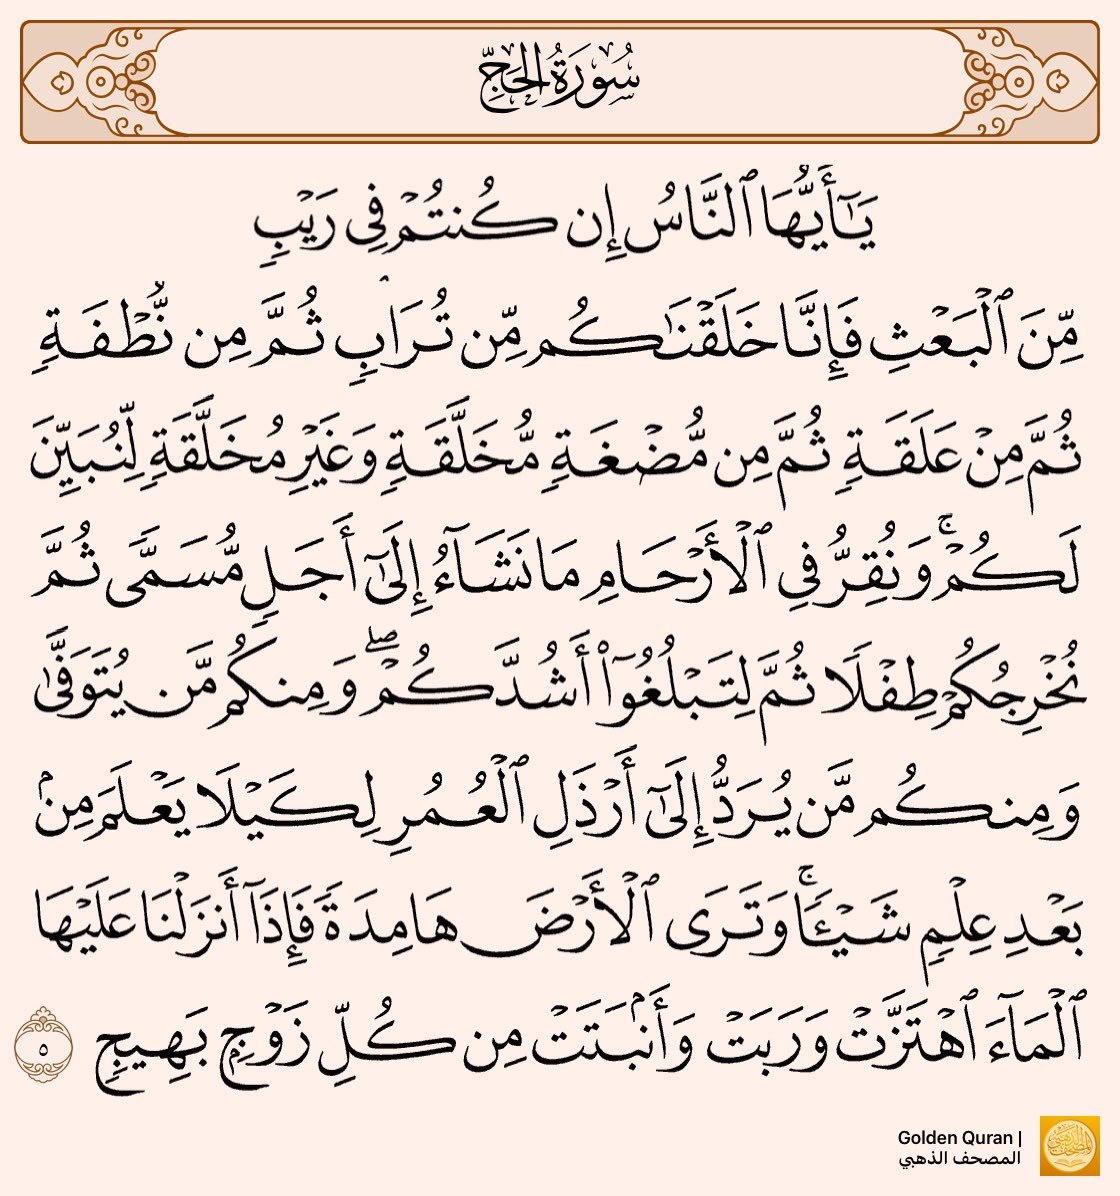 سُورَةُ الحَجِّ
يَٰٓأَيُّهَا ٱلنَّاسُ إِن كُنتُمۡ فِي رَيۡبٖ
مِّنَ ٱلۡبَعۡثِ فَإِنَّا خَلَقۡنَٰكُم مِّن تُرَابٖ ثُمَّ مِن نُّطۡفَةٖ
ثُمَّ مِنۡ عَلَقَةٖ ثُمَّ مِن مُّضۡغَةٖ مُّخَلَّقَةٖ وَغَيۡرِ مُخَلَّقَةٖ لِّنُبَيِّنَ
لَكُمۡۚ وَنُقِرُّ فِي ٱلۡأَرۡحَامِ مَا نَشَآءُ إِلَىٰٓ أَجَلٖ مُّسَمّٗى ثُمَّ
نُخۡرِجُكُمۡ طِفۡلٗا ثُمَّ لِتَبۡلُغُوٓاْ أَشُدَّكُمۡۖ وَمِنكُم مَّن يُتَوَفَّىٰ
وَمِنكُم مَّن يُرَدُّ إِلَىٰٓ أَرۡذَلِ ٱلۡعُمُرِ لِكَيۡلَا يَعۡلَمَ مِنۢ
بَعۡدِ عِلۡمٖ شَيۡـٔٗاۚ وَتَرَى ٱلۡأَرۡضَ هَامِدَةٗ فَإِذَآ أَنزَلۡنَا عَلَيۡهَا
ٱلۡمَآءَ ٱهۡتَزَّتۡ وَرَبَتۡ وَأَنۢبَتَتۡ مِن كُلِّ زَوۡجِۭ بَهِيجٖ ٥
Golden Quran |
المصحف الذهبي